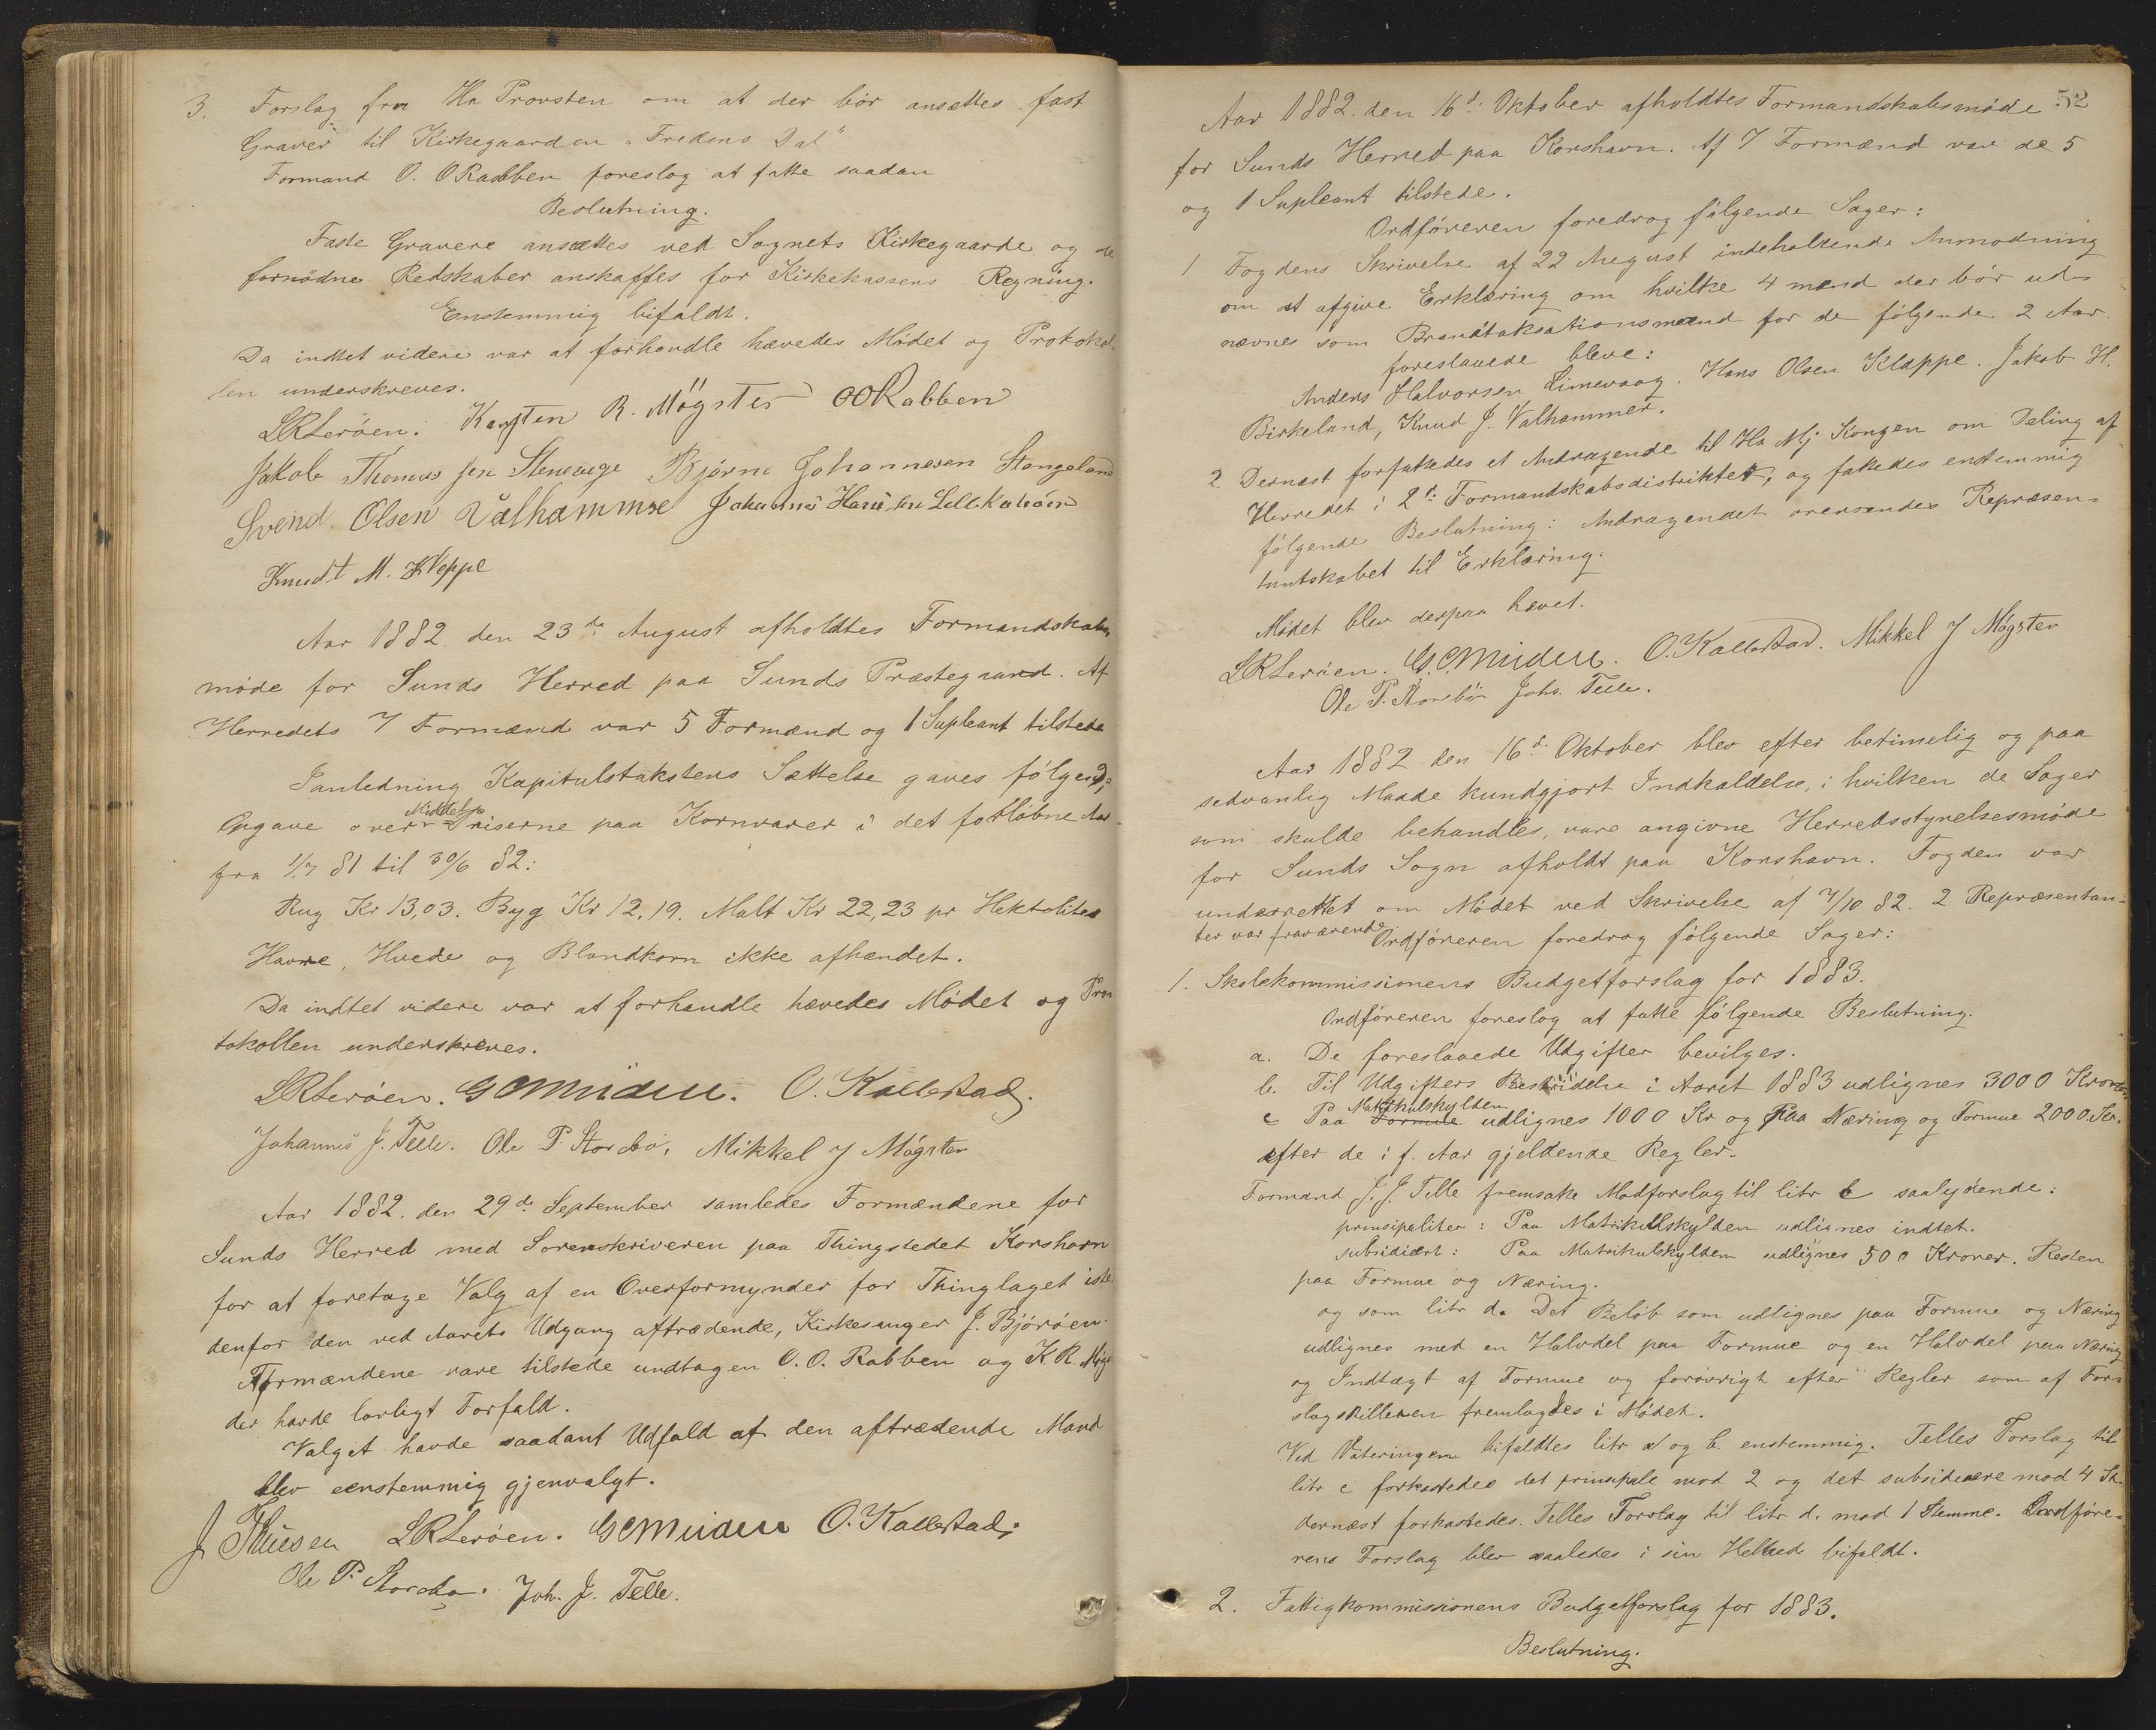 3. Forslag fra Hr Provsten om at der bör ansættes fast
Graver til Kirkegaarden "Fredens Dal"
Formand O. O Rabben foreslog at fatte saadan
Beslutning.
Faste Gravere ansættes ved Sognets Kirkegaarde og de
fornödne Redskaber anskaffes for Kirkekassens Regning.
Enstemmig bifaldt.
Da indtet videre var at forhandle hævedes Mödet og Protokol-
len underskreves.
LRLeröen. Karsten R. Mögster OORabben
Jakob Thomassen Stenevage Björne Johannesen Stangeland
Svend Olsen Valhammer Johannes Hansen Lillekalsöen
Knudt M. Kleppe
Aar 1882 den 23de August afholdtes Formandskabs
möde for Sunds Herred paa Sunds Præstegaard. Af
Herredets 7 Formænd var 5 Formænd og 1 Supleant tilstede
I anledning Kapitulstakstens Sættelse gaves fölgende
Opgave over Middelpriserne paa Kornvarer i det forlöbne Aar
fra 1/7 81 til 30/6 82:
Rug Kr 13,03. Byg Kr 12,19. Malt Kr 22,23 pr Hektoliter
Havre, Hvede og Blandkorn ikke afhændet.
Da indtet videre var at forhandle hævedes Mödet og Pro
tokollen underskreves.
LRLeröen. O. Kallestad.
Johannes J. Telle. Ole P. Storebö. Mikkel J Mögster
Aar 1882. den 29de September samledes Formændene for
Sunds Herred med Sorenskriveren paa Thingstedet Korshavn
for at foretage Valg af en Overformynder for Thinglaget iste
denfor den ved Aarets Udgang aftrædende, Kirkesanger J. Björöen.
Formændene vare tilstede undtagen O. O. Rabben og K. R. Mögs
der havde lovligt Forfald.
Valget havde saadant Udfald at den aftrædende Mand
blev eenstemmig gjenvalgt.
LRLeröen. O. Kallestad.
Ole P. Storebö. Joh. J. Telle.
52
Aar 1882 den 16d. Oktober afholdtes Formandskabsmöde
for Sunds Herred paa Korshavn. Af 7 Formænd var de 5
og 1 Supleant tilstede.
Ordföreren foredrog fölgende Sager:
1 Fogdens Skrivelse af 22 August indeholdende Anmodning
om at afgive Erklæring om hvilke 4 mænd der bör ud-
nævnes som Brandtaksationsmænd for de fölgende 2 Aar.
foreslaaede bleve:
Anders Halvorsen Limevaag. Hans Olsen Klappe. Jakob H.
Birkeland, Knud J. Valhammer.
2. Dernæst forfattedes et Andragende til Hs Mj Kongen om Deling af
Herredet i 2de Formandskabsdistrikter, og fattedes enstemmig
fölgende Beslutning: Andragendet oversendes Repræsen-
tantskabet til Erklæring.
Mödet blev derpaa hævet.
LRLeröen. O. Kallestad. Mikkel J Mögster
Ole P. Storebö Johs. Telle.
Aar 1882 den 16d. Oktober blev efter betimelig og paa
sedvanlig Maade kundgjort Indkaldelse, i hvilken de Sager
som skulde behandles, vare angivne Herredsstyrelsesmöde
for Sunds Sogn afholdt paa Korshavn. Fogden var
underrettet om Mödet ved Skrivelse af 7/10 82. 2 Repræsentan-
ter var fraværende. Ordföreren foredrog fölgende Sager:
1. Skolekommissionens Budgetforslag for 1883.
Ordföreren foreslog at fatte fölgende Beslutning.
a. De foreslaaede Udgifter bevilges.
b. Til Udgifters Bestridelse i Aaret 1883 udlignes 3000 Kroner
c Paa Formue Matrikulskylden udlignes 1000 Kr og Paa Næring og Formue 2000 Kr.
efter de i f. Aar gjeldende Regler.
Formand J. J. Telle fremsatte Modforslag til litr c saalydende:
prinsipaliter: Paa Matrikulskylden udlignes indtet.
subsidiært: Paa Matrikulskylden udlignes 500 Kroner. Resten
paa Formue og Næring.
og som litr d. Det Belöb som udlignes paa Formue og Næring
udlignes med en Halvdel paa Formue og en Halvdel paa Næring
og Indtægt af Formue og forövrigt efter Regler som af For-
slagstilleren fremlagdes i Mödet.
Ved Voteringen bifaldtes litr a og b. enstemmig. Telles Forslag til
litr c forkastedes det prinsipale mod 2 og det subsidiære mod 4 St.
dernæst forkastedes Telles Forslag til litr d. mod 1 Stemme. Ordföre-
rens Forslag blev saaledes i sin Helhed bifaldt.
2. Fattigkommissionens Budgetforslag for 1883.
Beslutning.